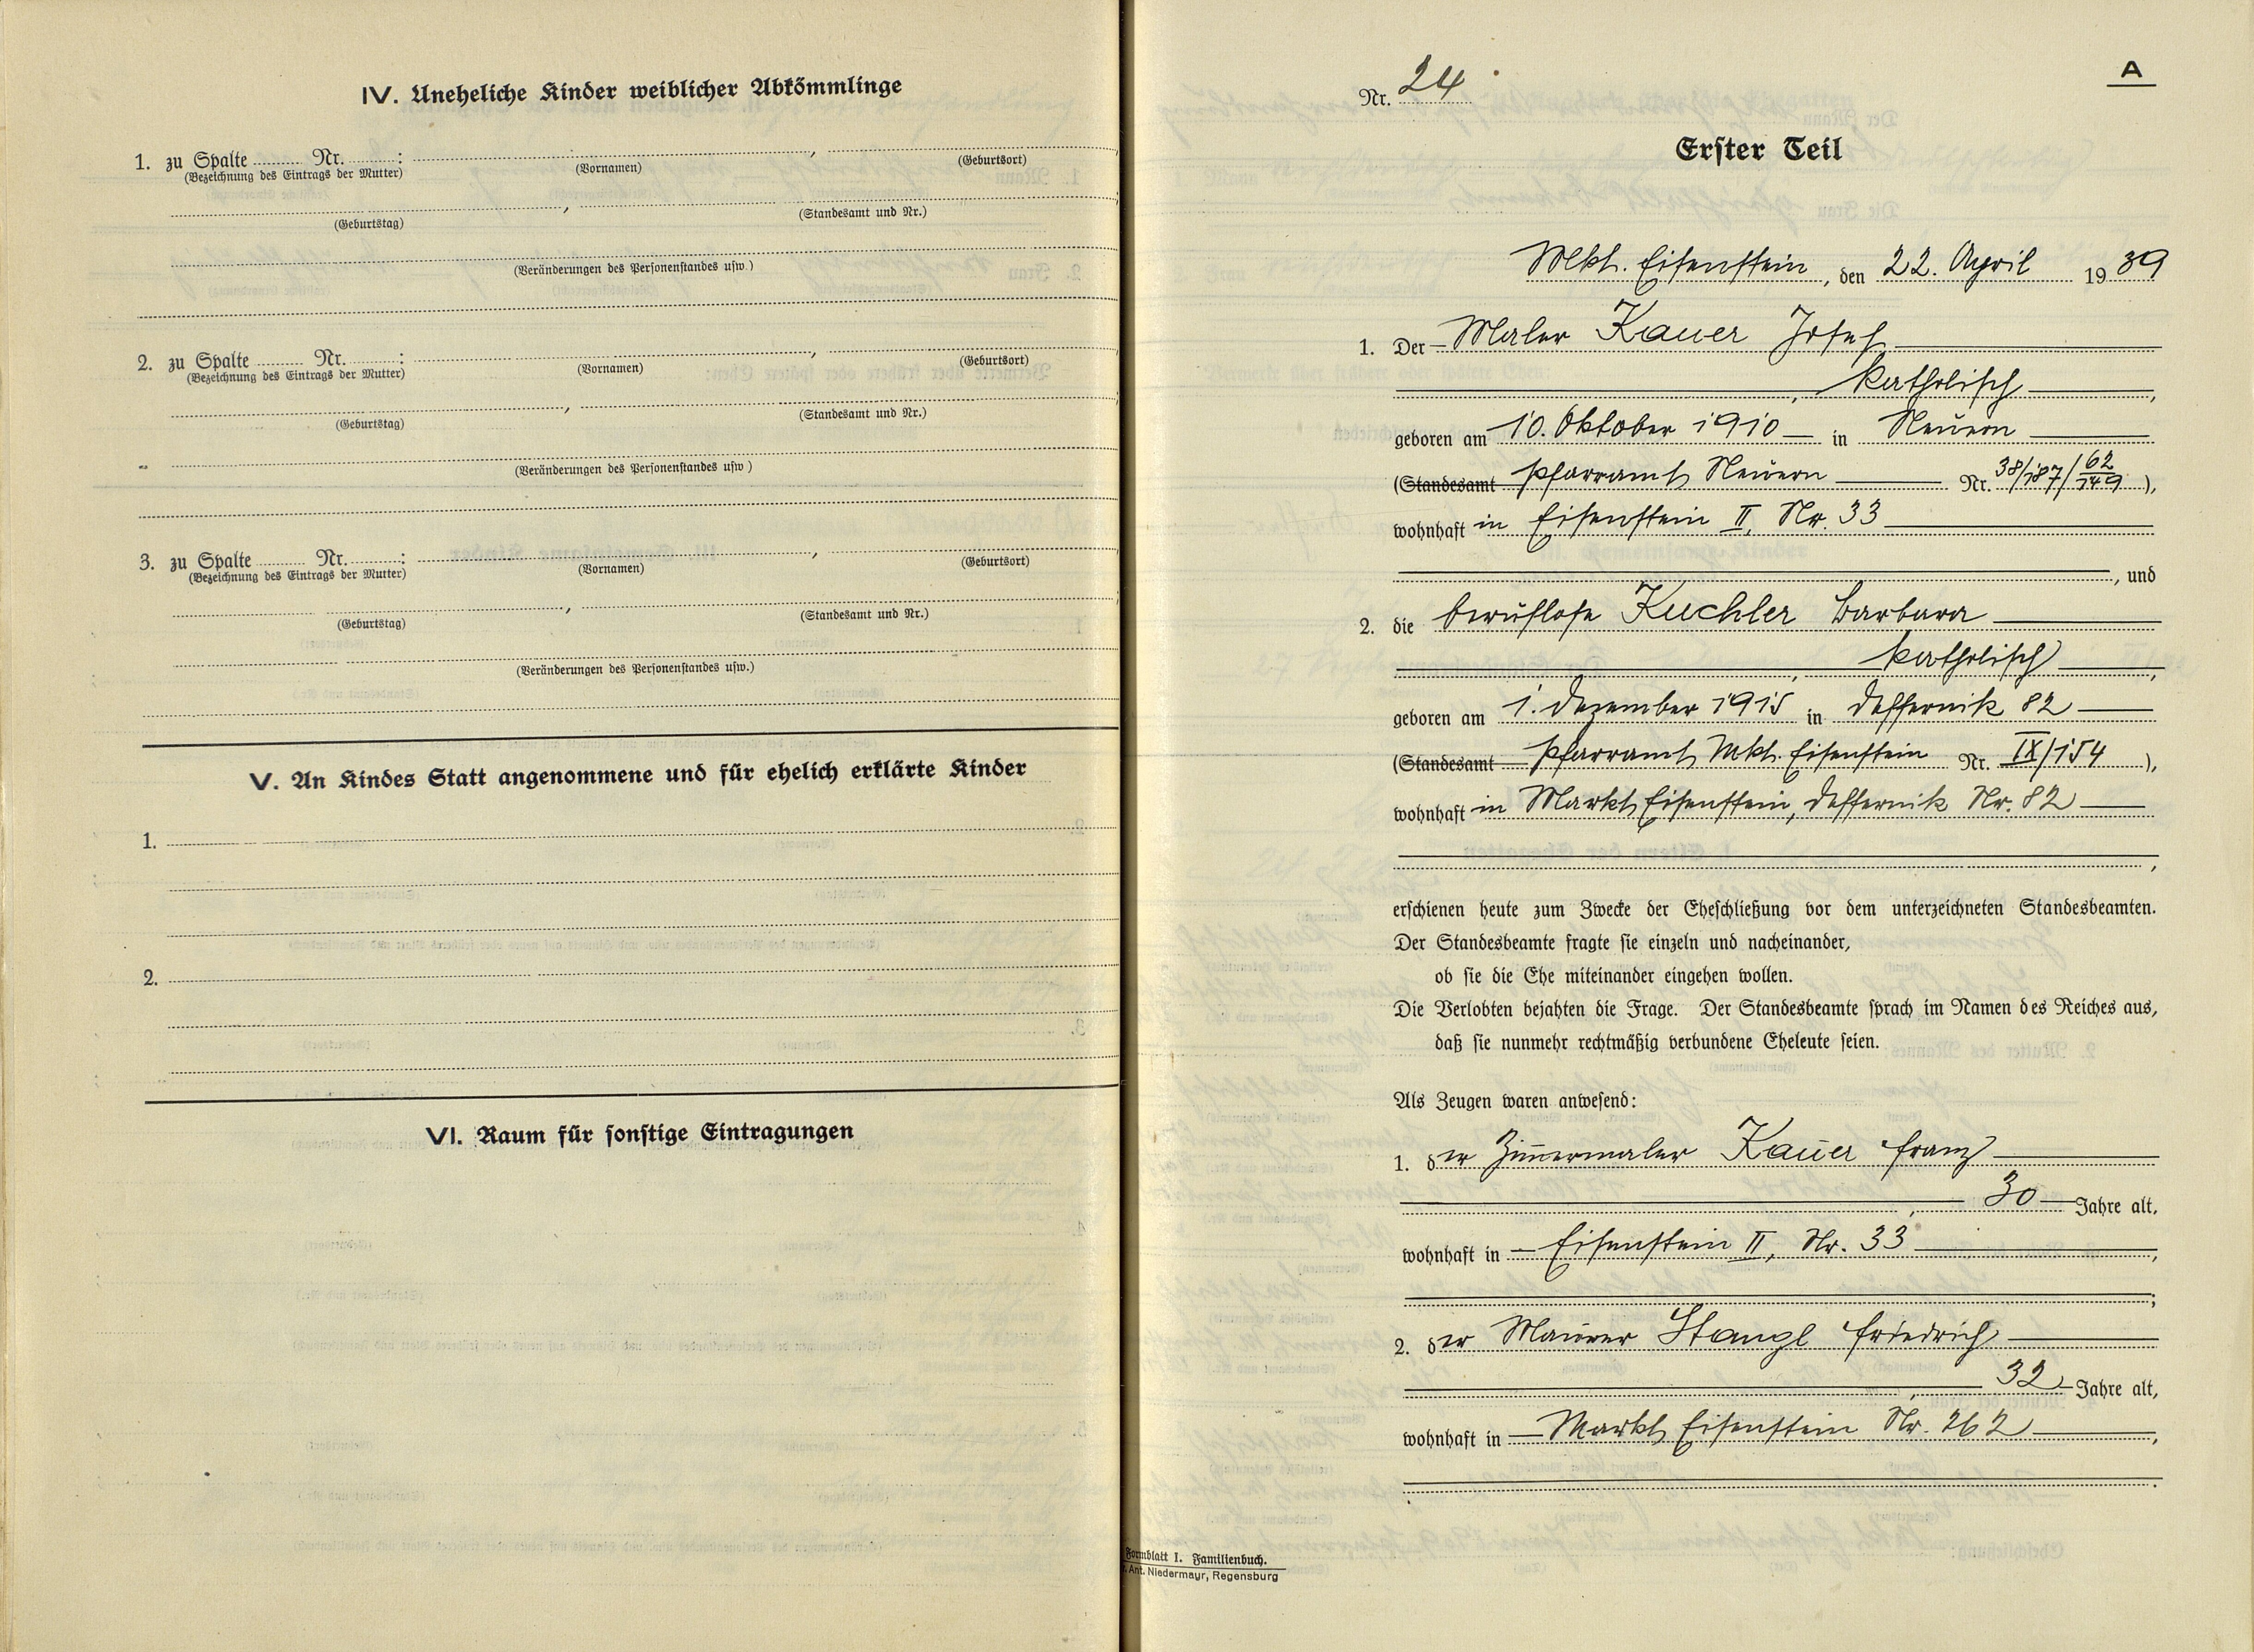 IV. Uneheliche Kinder weiblicher Abkömmlinge
1. zu Spalte ........ Nr. ........ : ........ , ........
(Bezeichnung des Eintrags der Mutter) (Vornamen) (Geburtsort)
........ , ........
(Geburtstag) (Standesamt und Nr.)
(Veränderungen des Personenstandes usw.)
2. zu Spalte ........ Nr. ........ : ........ , ........
(Bezeichnung des Eintrags der Mutter) (Vornamen) (Geburtsort)
........ , ........
(Geburtstag) (Standesamt und Nr.)
(Veränderungen des Personenstandes usw.)
3. zu Spalte ........ Nr. ........ : ........ , ........
(Bezeichnung des Eintrags der Mutter) (Vornamen) (Geburtsort)
........ , ........
(Geburtstag) (Standesamt und Nr.)
(Veränderungen des Personenstandes usw.)
V. An Kindes Statt angenommene und für ehelich erklärte Kinder
1.
2.
VI. Raum für sonstige Eintragungen
A
Nr. 24
Erster Teil
Mkt. Eisenstein, den 22. April 1939
1. Der Maler Kauer Josef
, katholisch,
geboren am 10. Oktober 1910 in Neuern
(Standesamt Pfarramt Neuern Nr. 38/187/62/149),
wohnhaft in Eisenstein II, Nr. 33
, und
2. die berufslose Kuchler Barbara
, katholisch,
geboren am 1. Dezember 1915 in Deffernik 82
(Standesamt Pfarramt Mkt. Eisenstein Nr. IX/154),
wohnhaft in Markt Eisenstein, Deffernik Nr. 82
,
erschienen heute zum Zwecke der Eheschließung vor dem unterzeichneten Standesbeamten.
Der Standesbeamte fragte sie einzeln und nacheinander,
ob sie die Ehe miteinander eingehen wollen.
Die Verlobten bejahten die Frage. Der Standesbeamte sprach im Namen des Reiches aus,
daß sie nunmehr rechtmäßig verbundene Eheleute seien.
Als Zeugen waren anwesend:
1. der Zimmermaler Kauer Franz
, 30 Jahre alt,
wohnhaft in Eisenstein II, Nr. 33,
;
2. der Maurer Stangl Friedrich
, 32 Jahre alt,
wohnhaft in Markt Eisenstein Nr. 262,
.
Formblatt I. Familienbuch.
Ant. Niedermayr, Regensburg